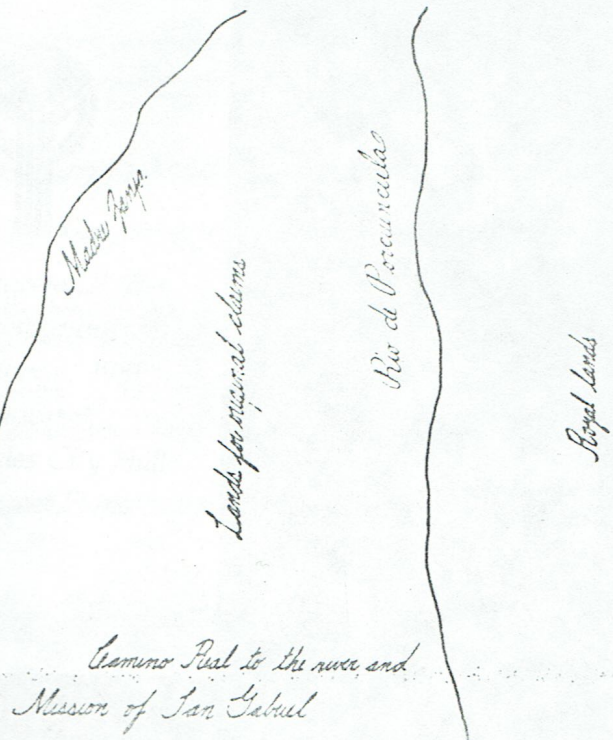 Madre Zanja.
Lands for original claims
Rio de Porciuncula
Royal lands
Camino Real to the river and
Mission of San Gabriel